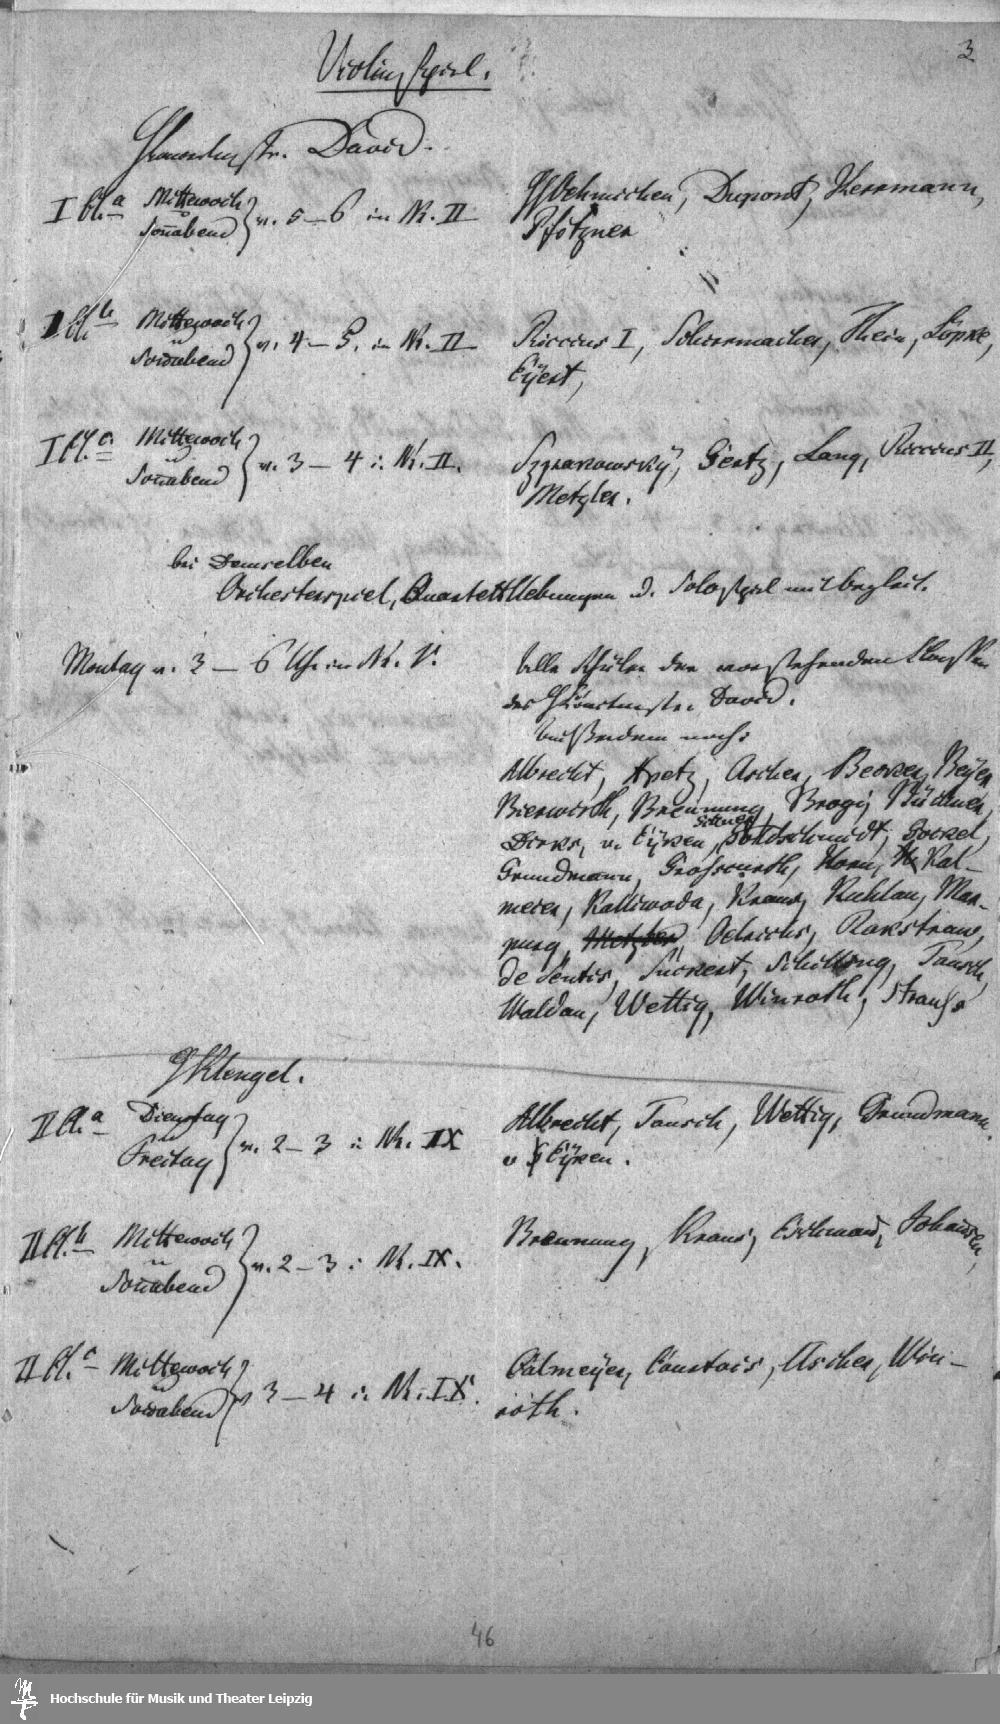 3
Violinspiel.
H Concertmstr. David.
I Cl. a Mittewoch
u
Sonnabend v. 5–6 in Nr. II
HH Oehmichen, Dupont, Herrmann,
Pfitzner
I Cl. b Mittewoch
u
Sonnabend v. 4–5. in Nr. II
Riccius I, Schirrmacher, Thein, Löpke,
Eÿert,
I Cl. c. Mittewoch
u
Sonnabend v. 3–4 i. Nr. II.
Gertz, Lang, Riccius II,
Metzler.
bei Demselben
Orchesterspiel, Quartett Uebungen u. Solospiel mit begleit.
Montag v. 3–6 Uhr in Nr. V.
Alle Schüler der vorstehenden Classen
des H Concertmstr. David.
Außerdem noch:
Albrecht, Apetz, Ascher, Becker, Beÿer
Bierwirth, Brennung, Brogi, Büchner,
Dirks, v. Eÿken, Goldschmidt, Gockel,
Grundmann, Grosscurth, Horn, Kal-
meier, Kalliwoda, Kraus, Kuhlau, Mar-
purg, Metzler, Oelrichs, Rakstraw,
de Sentis, Suckert, Schilling, Tausch,
Waldau, Wettig, Winroth, Strauß
H Klengel.
II Cl. a Dienstag
Freitag v. 2–3 i Nr. IX
Albrecht, Tausch, Wettig, Grundmann.
v Eÿken.
II Cl. b Mittewoch
u
Sonnabend v. 2–3 i Nr. IX.
Brennung, Kraus, Eschmann, Johansen,
II Cl. c Mittewoch
u
Sonnabend v 3–4 i. Nr. IX.
Calmeÿer, Ascher, Win-
roth.
46
Hochschule für Musik und Theater Leipzig